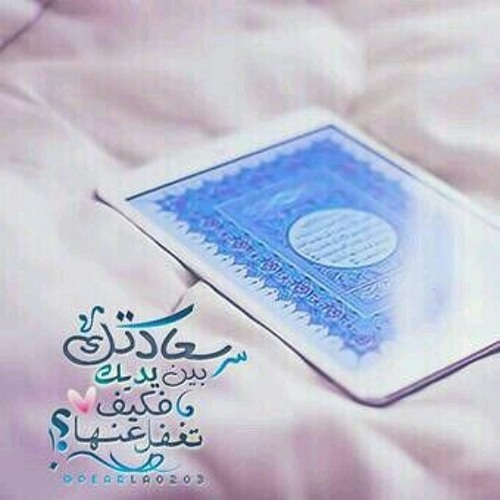 سر سعادتك
بين يديك
فكيف
تغفل عنها؟!
@PEARLA0203